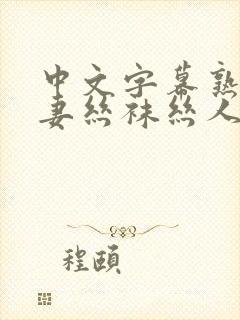 中文字幕熟
妻丝袜丝人
程颐